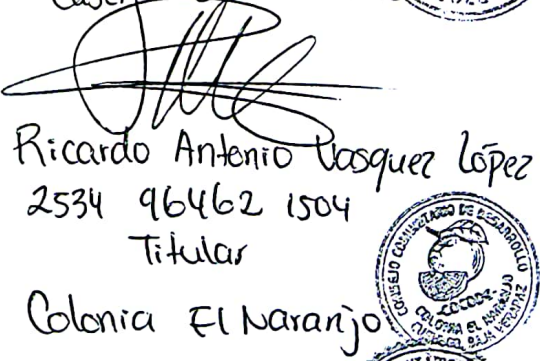 Ricardo Antonio Vasquez López
2534 96462 1504
Titular
Colonia El Naranjo
CONSEJO COMUNITARIO DE DESARROLLO
-COCODE-
COLONIA EL NARANJO